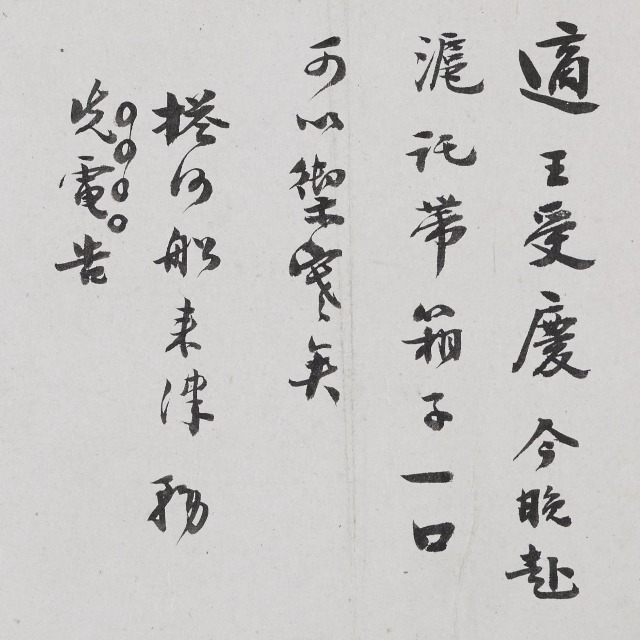 適王受慶今晚赴
滬託帶箱子一口
可以禦寒矣
搭何船来津務
先電告